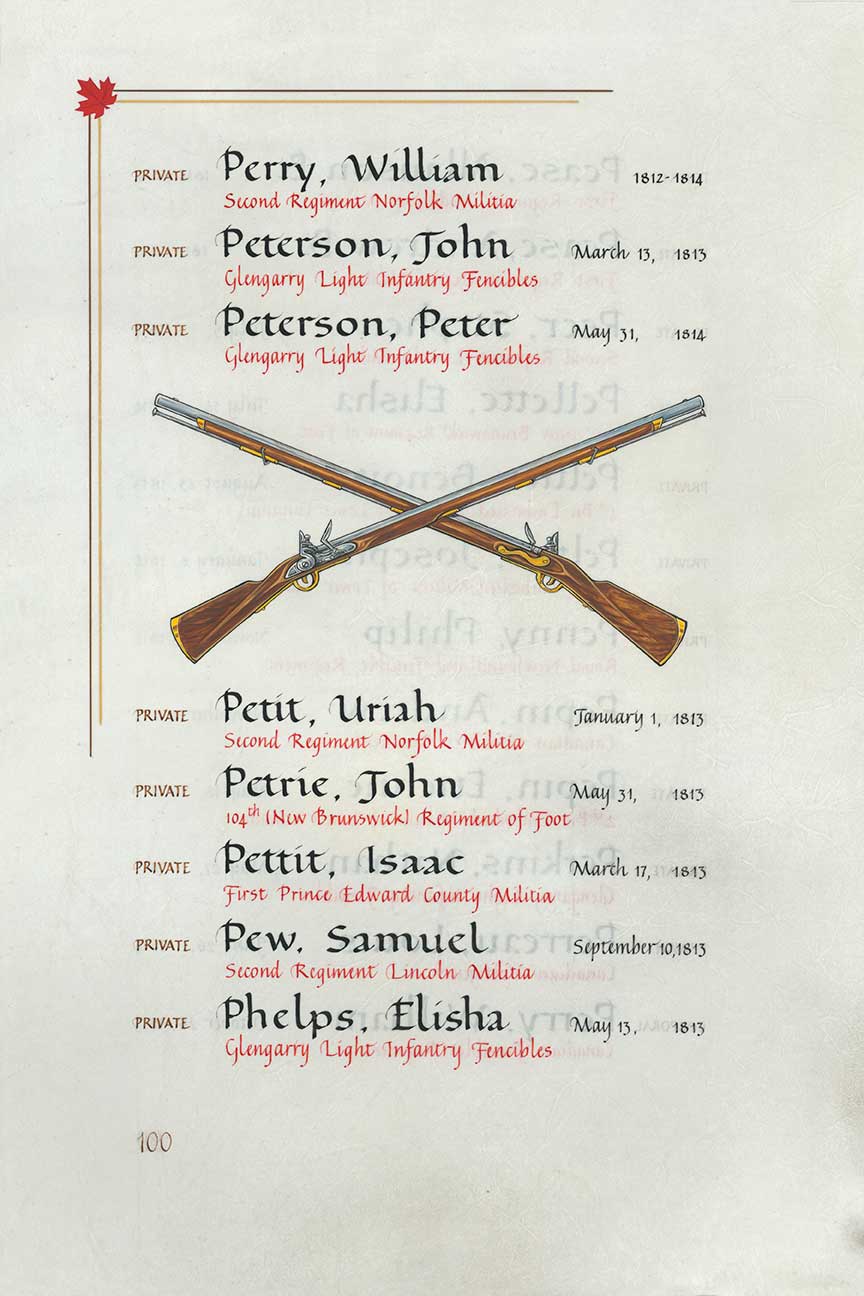 PRIVATE Perry, William 1812-1814
Second Regiment Norfolk Militia
PRIVATE Peterson, John March 13, 1813
Glengarry Light Infantry Fencibles
PRIVATE Peterson, Peter May 31, 1814
Glengarry Light Infantry Fencibles
PRIVATE Petit, Uriah January 1, 1813
Second Regiment Norfolk Militia
PRIVATE Petrie, John May 31, 1813
104th (New Brunswick) Regiment of Foot
PRIVATE Pettit, Isaac March 17, 1813
First Prince Edward County Militia
PRIVATE Pew, Samuel September 10, 1813
Second Regiment Lincoln Militia
PRIVATE Phelps, Elisha May 13, 1813
Glengarry Light Infantry Fencibles
100